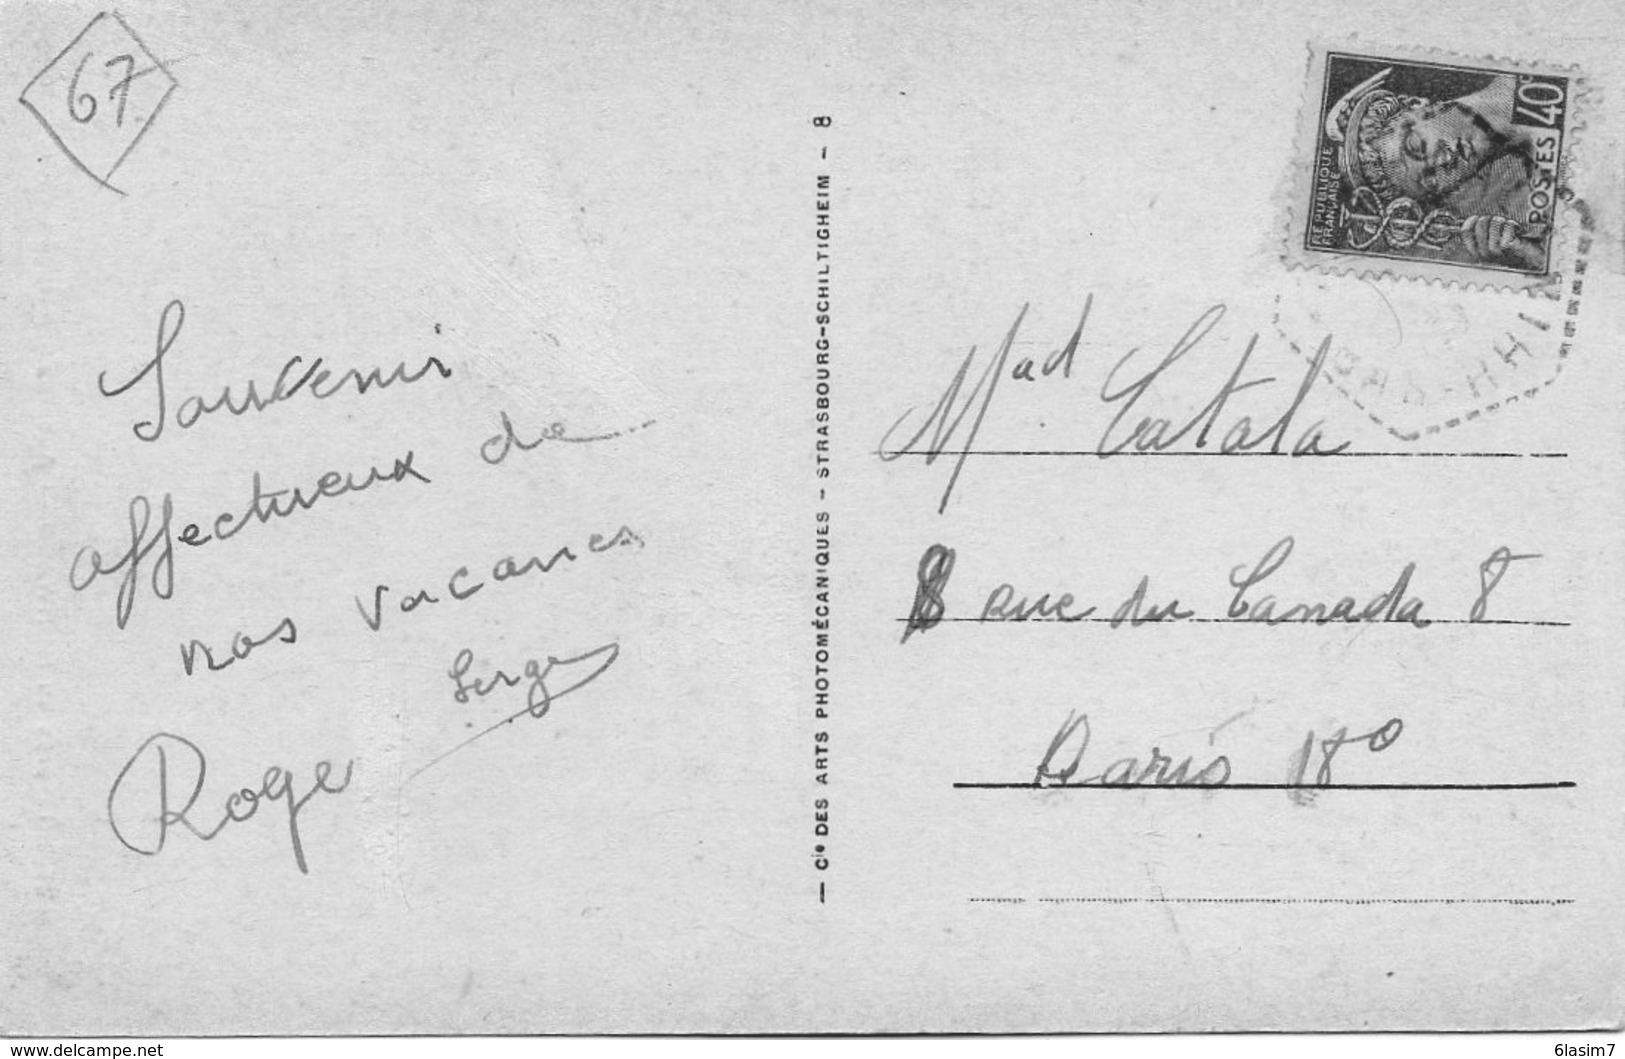 67
Souvenir
affectueux de
nos vacances
Serge
Roge
— Cie DES ARTS PHOTOMÉCANIQUES - STRASBOURG-SCHILTIGHEIM - 8
RÉPUBLIQUE
FRANÇAISE
POSTES 40c
Mad Catala
8 rue du Canada 8
Paris 18°
BAS-RHIN
www.delcampe.net
6lasim7